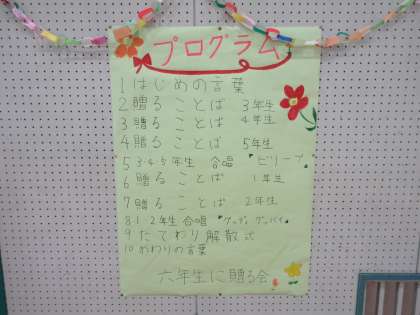 プログラム
1 はじめの言葉
2 贈ることば 3年生
3 贈ることば 4年生
4 贈ることば 5年生
5 3・4・5年生 合唱 『ビリーブ』
6 贈ることば 1年生
7 贈ることば 2年生
8 1・2年生 合唱
9 たてわり解散式
10 おわりの言葉
六年生に贈る会